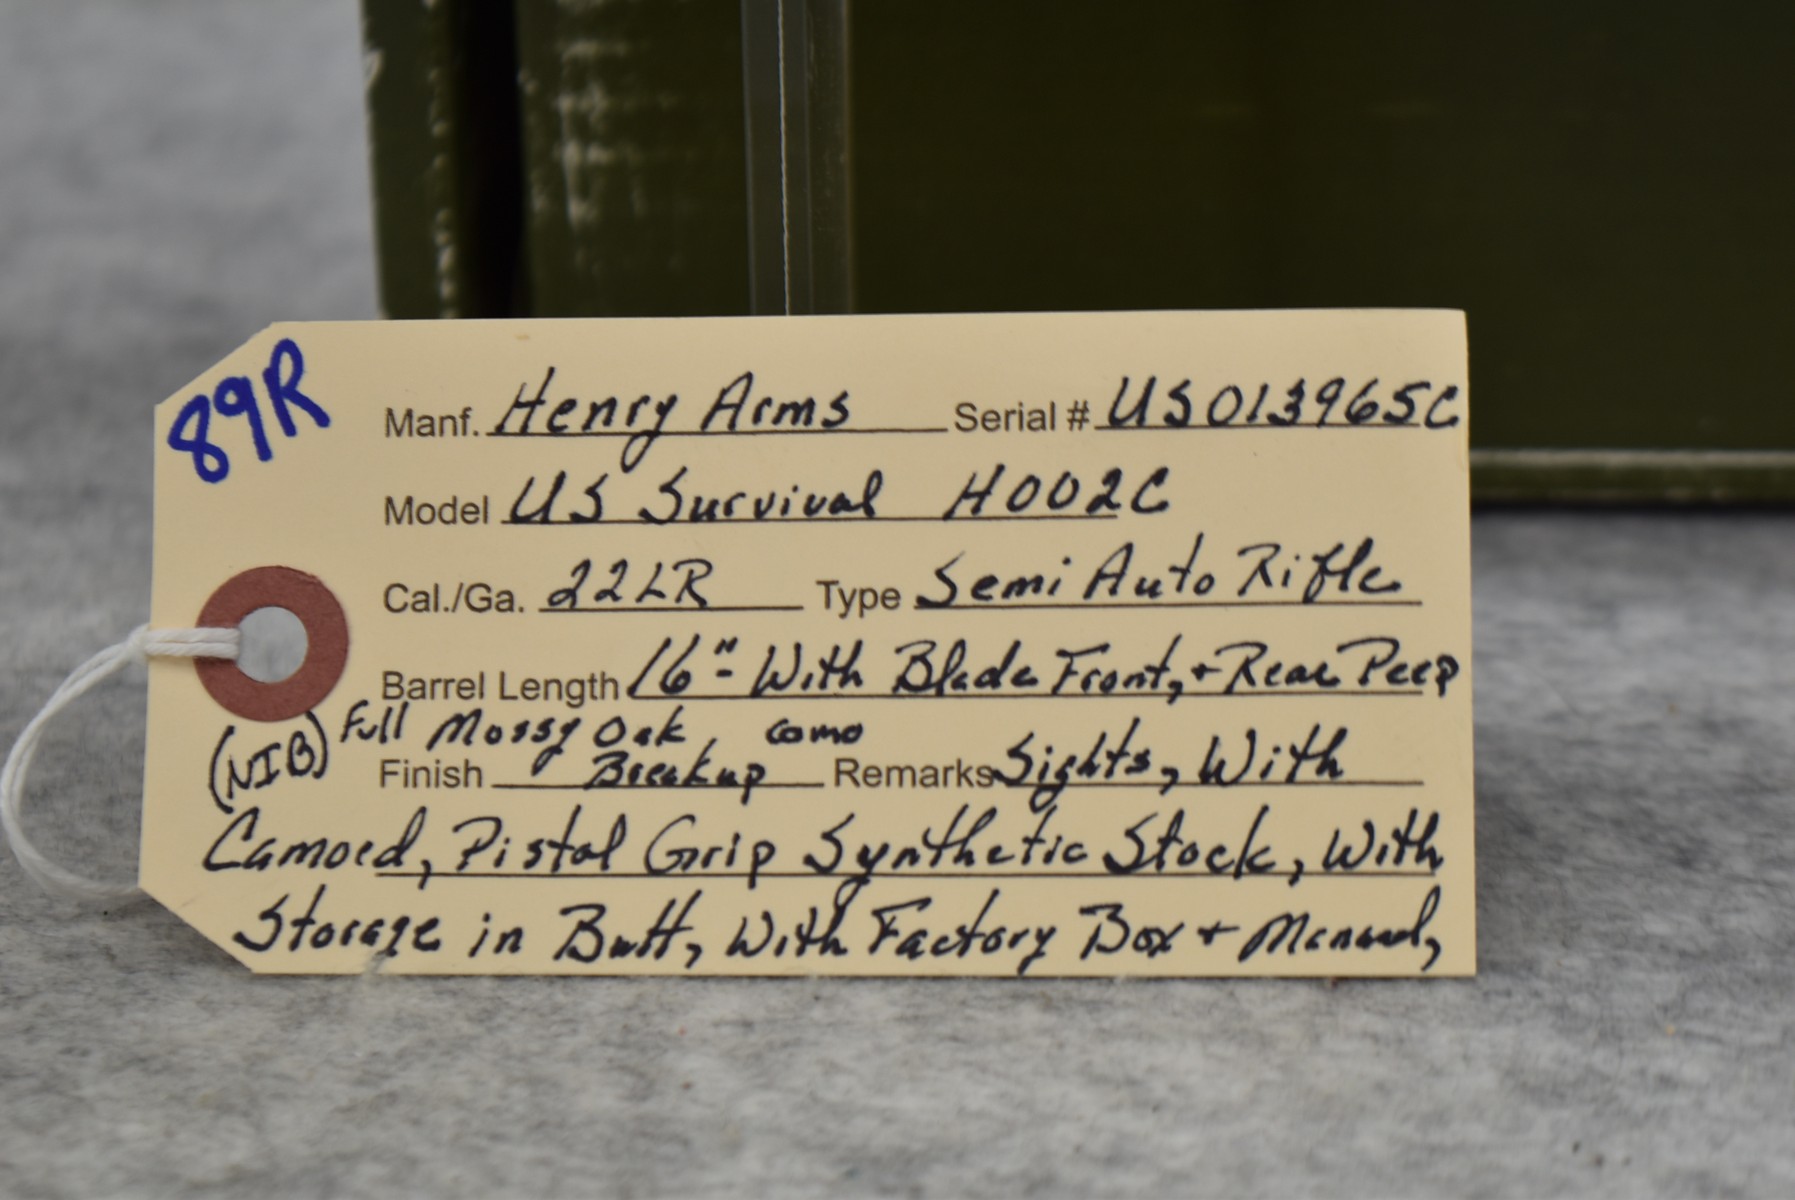 89R
Manf. Henry Arms Serial # US013965C
Model US Survival H002C
Cal./Ga. 22LR Type Semi Auto Rifle
Barrel Length 16" - With Blade Front, + Rear Peep
(NIB) Full Mossy Oak, Camo
Finish Breakup Remarks Sights, With
Camoed, Pistol Grip Synthetic Stock, With
Storage in Butt, With Factory Box + Manual,